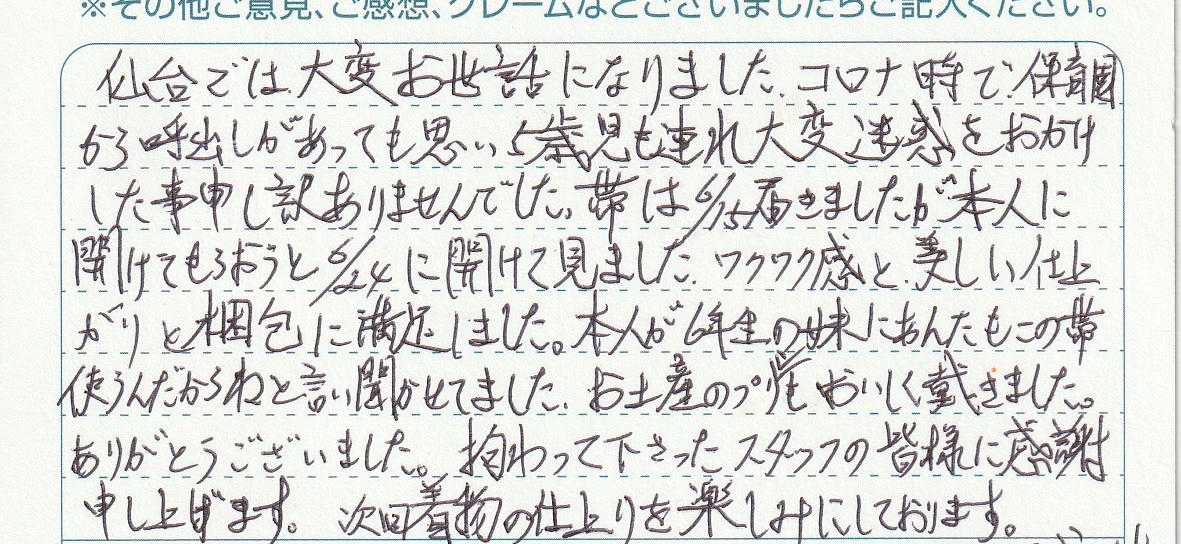 ※その他ご意見、ご感想、クレームなどございましたらご記入ください。
仙台では大変お世話になりました。コロナ時で保育園
から呼出しがあっても思い5歳児も連れ大変迷惑をおかけ
した事申し訳ありませんでした。帯は6/15届きましたが本人に
開けてもらおうと6/24に開けて見ました。ワクワク感と美しい仕上
がりと梱包に満足しました。本人が6年生の妹にあんたもこの帯
使うんだからねと言い聞かせてました。お土産のプリおいしく戴きました。
ありがとうございました。拘わって下さったスタッフの皆様に感謝
申し上げます。次回着物の仕上りを楽しみにしております。